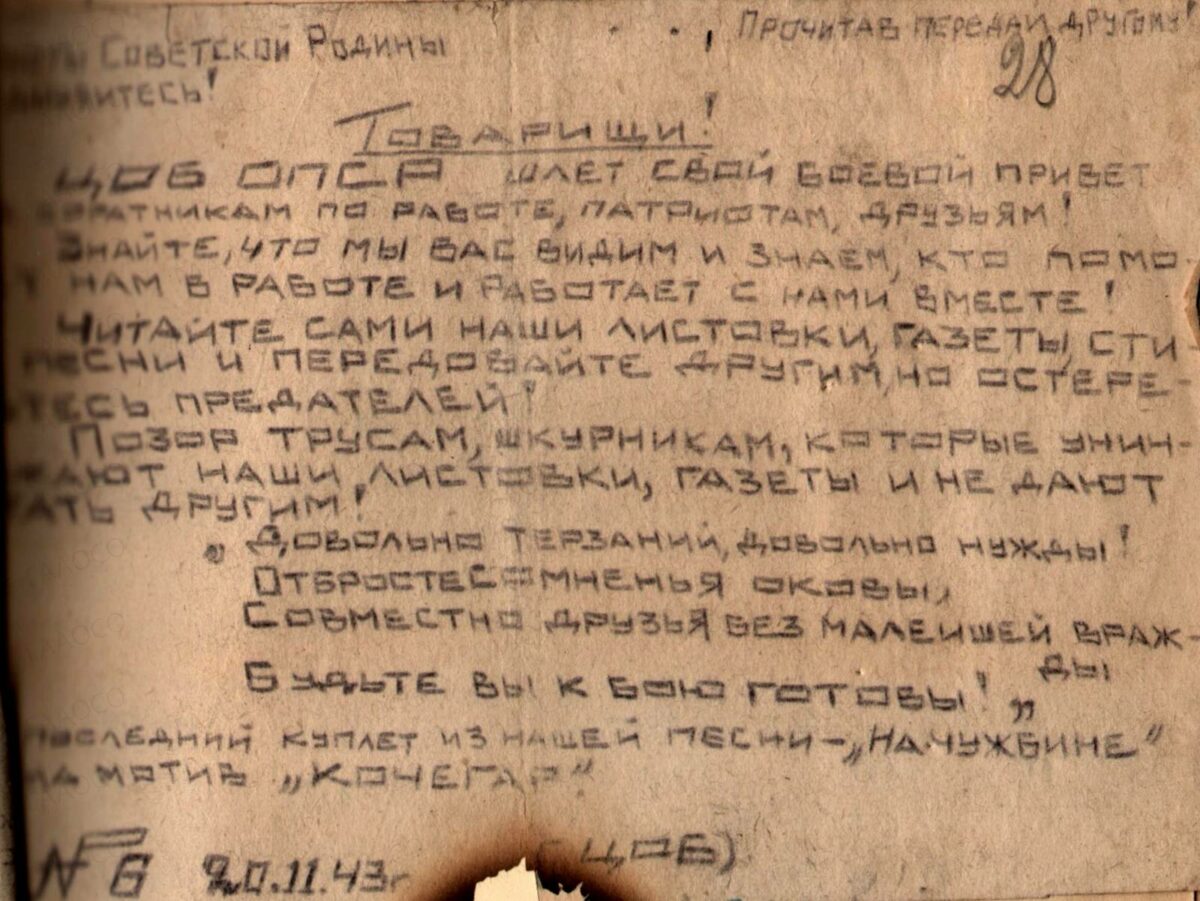 Советской Родины
Прочитав передай другому!
28
Товарищи!
ЦОБ ОПСР шлет свой боевой привет
по работе, патриотам, друзьям!
Знайте, что мы вас видим и знаем, кто помо-
нам в работе и работает с нами вместе!
Читайте сами наши листовки, газеты, сти-
песни и передовайте другим, но остере-
тесь предателей!
Позор трусам, шкурникам, которые унич-
жают наши листовки, газеты и не дают
тать другим!
„Довольно терзаний, довольно нужды!
Отбросте сомненья оковы,
Совместно друзья без малеишей враж-
ды
Будьте вы к бою готовы!„
последний куплет из нашей песни – „На чужбине“
на мотив „Кочегар“
№ 6 20.11.43г. (ЦОБ)